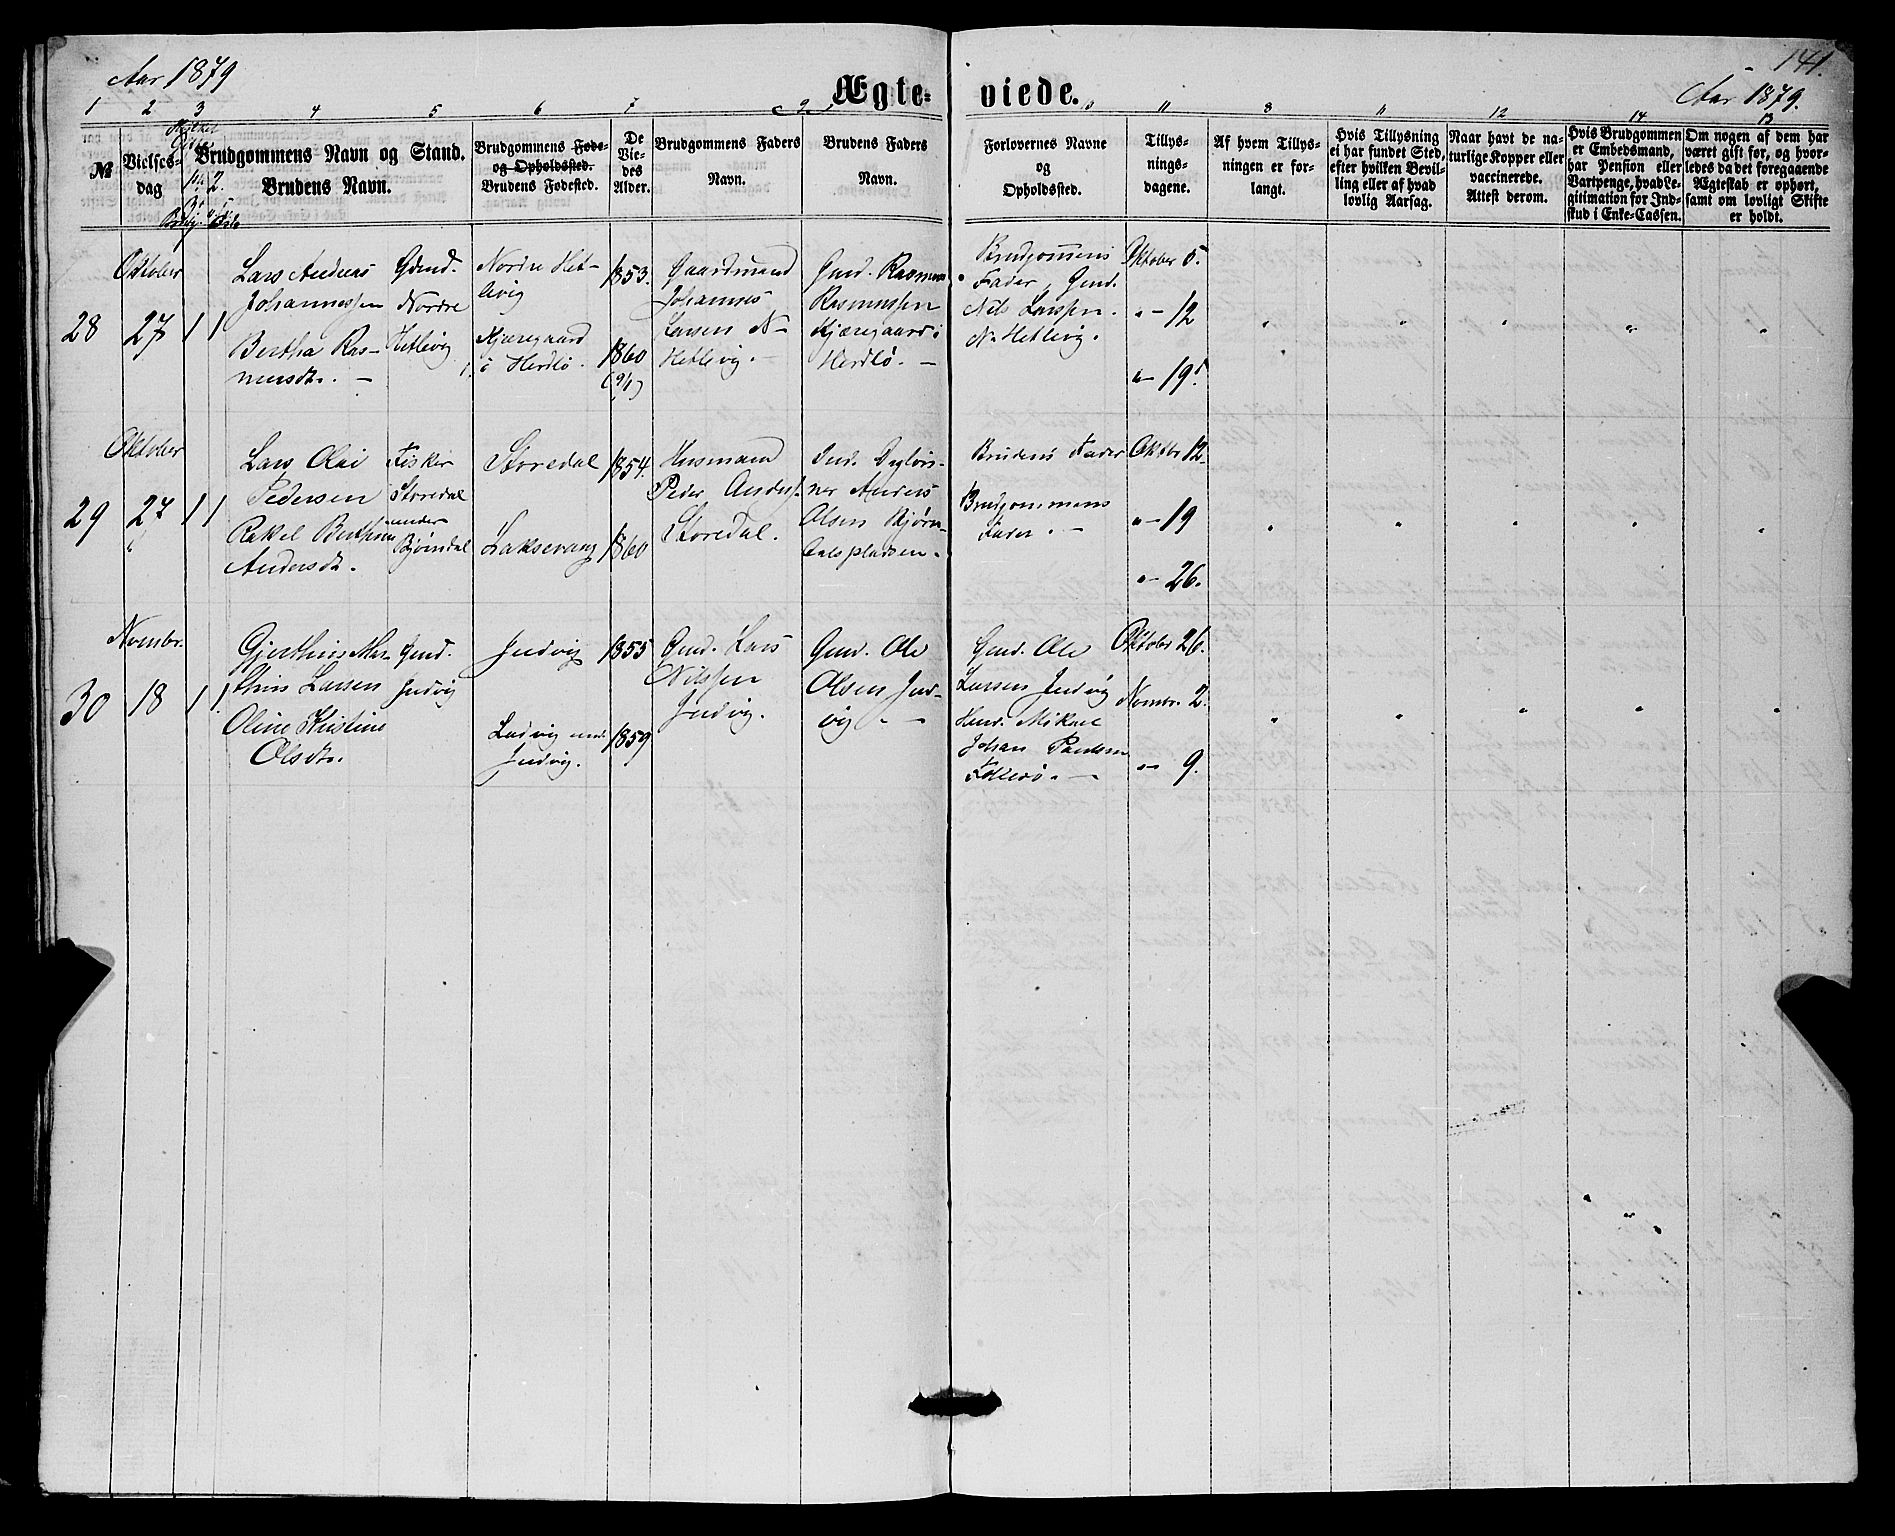 Aar 1879
Ægteviede.
141.
Aar 1879.
1 2 3 4 5 6 7 9 10 11 8 11 12 14 13
№
Vielses-
dag
Brudgommens Navn og Stand.
Brudens Navn.
Brudgommens Føde-
og Opholdssted.
Brudens Fødested.
De
Vie-
des
Alder.
Brudgommens Faders
Navn.
Brudens Faders
Navn.
Forlovernes Navne
og
Opholdssted.
Tillys-
nings-
dagene.
Af hvem Tillys-
ningen er for-
langt.
Hvis Tillysning
ei har fundet Sted,
efter hvilken Bevil-
ling eller af hvad
lovlig Aarsag.
Naar havt de na-
turlige Kopper eller
vaccinerede.
Attest derom.
Hvis Brudgommen
er Embedsmand,
har Pension eller
Vartpenge, hvad Le-
gitimation for Ind-
skud i Enke-Cassen.
Om nogen af dem har
været gift før, og hvor-
ledes da det foregaaende
Ægteskab er ophørt,
samt om lovligt Skifte
er holdt.
28
Oktober
27
1 1
Lars Andreas
Johannessen
Bertha Ras-
musdtr. —
Gdmd.
Nordre
Hetlevig
Nordre Het-
levig
Kjæregaard
i Herdlø.
1853.
1860
(9/1)
Gaardmand
Johannes
Larsen N-
Hetlevig. —
Gmd. Rasmus
Rasmussen
Kjæregaard i
Herdlø. —
Brudgommens
Fader, Gmd.
Nils Larssen
N. Hetlevig.
Oktober 5.
"— 12
"— 19.
29
Oktober
27
"
1 1
Lars Olai
Pedersen
Rakel Berthine
Andersdtr.
Fisker
Storedal
under
Bjørndal
Storedal
Laksevaag
1854.
1860
Husmand
Peder Anders.
Storedal.
Ind. Dagløn-
ner Anders
Olsen Bjørn-
dalspladsen.
Brudens Fader
Brudgommens
Fader. —
Oktbr 12.
"— 19
"— 26.
30
Novembr.
18
1 1
Gjerthius Mar-
thin Larsen
Oline Kristine
Olsdtr.
Gmd.
Indvig
Indvig
Ladvig und.
Indvig.
1855
1859
Gmd. Lars
Nilssen
Indvig.
Gmd. Ole
Olsen Ind-
vig " —
Gmd. Ole
Larsen Indvig
Gmd. Mikael
Johan Paulsen
Follesø. —
Oktober 26.
Novmbr. 2.
"— 9.